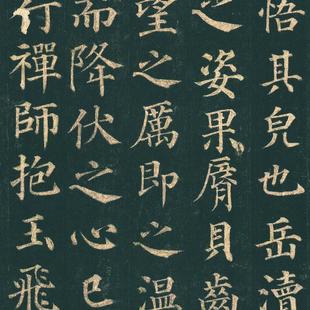 悟其皃也岳瀆
之姿果脣貝齒
望之厲即之温
而降伏之心已
行禪師抱玉飛